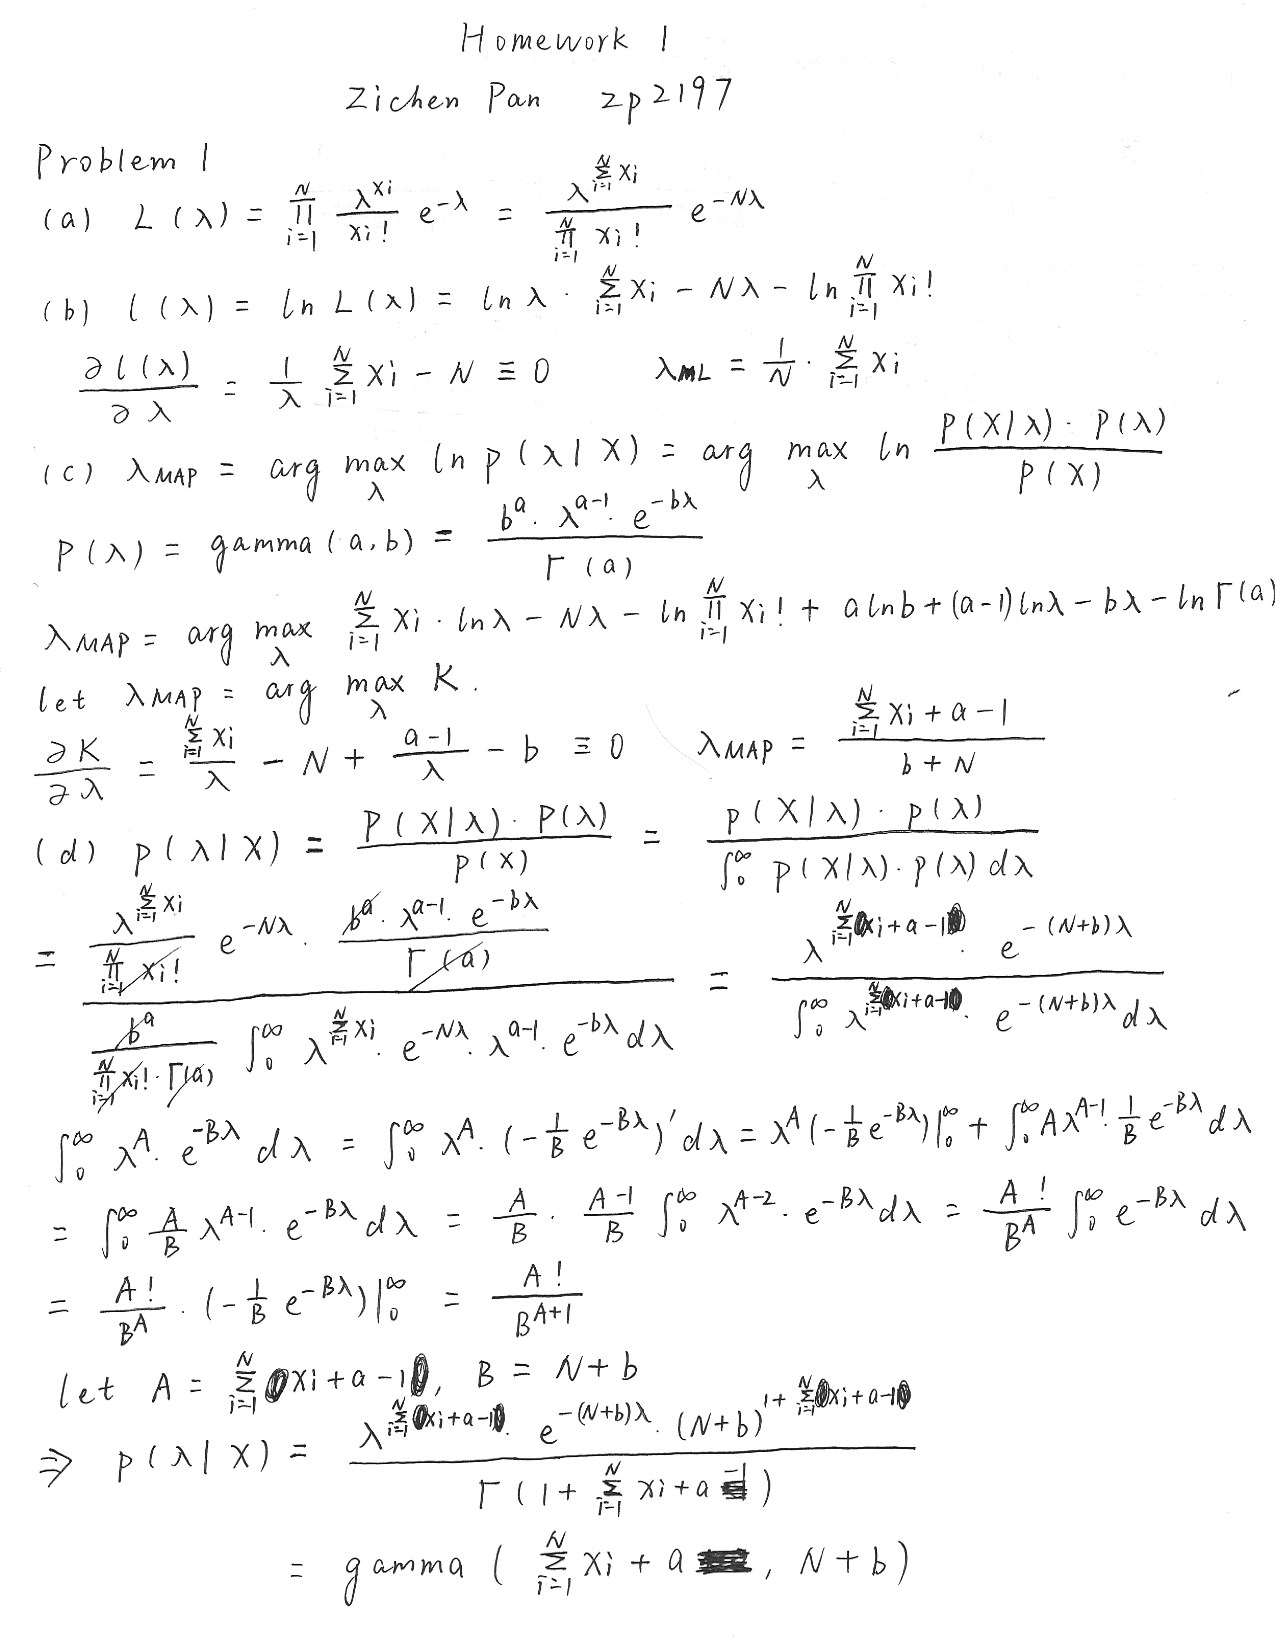 Homework 1
Zichen Pan zp2197
Problem 1
(a) L(λ) = ∏_{i=1}^{N} \frac{λ^{xi}}{xi!} e^{-λ} = \frac{λ^{∑_{i=1}^{N} xi}}{∏_{i=1}^{N} xi!} e^{-Nλ}
(b) l(λ) = ln L(λ) = ln λ · ∑_{i=1}^{N} xi - Nλ - ln ∏_{i=1}^{N} xi!
\frac{∂l(λ)}{∂λ} = \frac{1}{λ} ∑_{i=1}^{N} xi - N ≡ 0 λ_{ML} = \frac{1}{N} · ∑_{i=1}^{N} xi
(c) λ_{MAP} = arg max_{λ} ln p(λ|X) = arg max_{λ} ln \frac{P(X|λ) · P(λ)}{P(X)}
P(λ) = gamma(a,b) = \frac{b^{a} · λ^{a-1} · e^{-bλ}}{Γ(a)}
λ_{MAP} = arg max_{λ} ∑_{i=1}^{N} xi · lnλ - Nλ - ln ∏_{i=1}^{N} xi! + a lnb + (a-1)lnλ - bλ - lnΓ(a)
let λ_{MAP} = arg max_{λ} K.
\frac{∂K}{∂λ} = \frac{∑_{i=1}^{N} xi}{λ} - N + \frac{a-1}{λ} - b ≡ 0 λ_{MAP} = \frac{∑_{i=1}^{N} xi + a - 1}{b + N}
(d) p(λ|X) = \frac{P(X|λ) · P(λ)}{P(X)} = \frac{p(X|λ) · p(λ)}{∫_{0}^{∞} p(X|λ) · p(λ) dλ}
= \frac{\frac{λ^{∑_{i=1}^{N} xi}}{∏_{i=1}^{N} xi!} e^{-Nλ} · \frac{b^{a} · λ^{a-1} · e^{-bλ}}{Γ(a)}}{\frac{b^{a}}{∏_{i=1}^{N} xi! · Γ(a)} ∫_{0}^{∞} λ^{∑_{i=1}^{N} xi} · e^{-Nλ} · λ^{a-1} · e^{-bλ} dλ} = \frac{λ^{∑_{i=1}^{N} xi+a-1} · e^{-(N+b)λ}}{∫_{0}^{∞} λ^{∑_{i=1}^{N} xi+a-1} · e^{-(N+b)λ} dλ}
∫_{0}^{∞} λ^{A} · e^{-Bλ} dλ = ∫_{0}^{∞} λ^{A} · (-\frac{1}{B} e^{-Bλ})' dλ = λ^{A} (-\frac{1}{B} e^{-Bλ})|_{0}^{∞} + ∫_{0}^{∞} Aλ^{A-1} · \frac{1}{B} e^{-Bλ} dλ
= ∫_{0}^{∞} \frac{A}{B} λ^{A-1} · e^{-Bλ} dλ = \frac{A}{B} · \frac{A-1}{B} ∫_{0}^{∞} λ^{A-2} · e^{-Bλ} dλ = \frac{A!}{B^{A}} ∫_{0}^{∞} e^{-Bλ} dλ
= \frac{A!}{B^{A}} · (-\frac{1}{B} e^{-Bλ})|_{0}^{∞} = \frac{A!}{B^{A+1}}
let A = ∑_{i=1}^{N} xi + a - 1, B = N + b
⇒ p(λ|X) = \frac{λ^{∑_{i=1}^{N} xi+a-1} · e^{-(N+b)λ} · (N+b)^{1+∑_{i=1}^{N} xi+a-1}}{Γ(1 + ∑_{i=1}^{N} xi + a - 1)}
= gamma(∑_{i=1}^{N} xi + a, N + b)